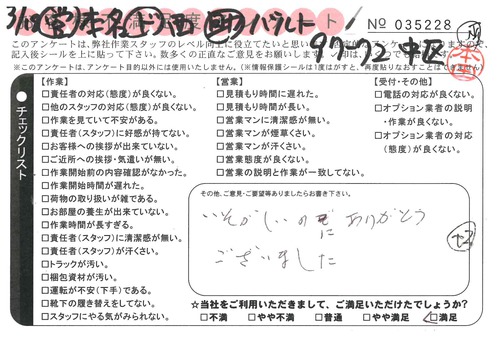 № 035228
このアンケートは、弊社作業スタッフのレベル向上に役立てたいと思い
記入後シールを上に貼って下さい。数多くの正直なご意見をお願いします。
※このアンケートは、アンケート目的以外には使用いたしません。(※情報保護シールは1度はがすと、再度貼りなおすことはで
チェックリスト
【作業】
□責任者の対応(態度)が良くない。
□他のスタッフの対応(態度)が良くない。
□作業を見ていて不安がある。
□責任者(スタッフ)に好感が持てない。
□お客様への挨拶が出来ていない。
□ご近所への挨拶・気遣いが無い。
□作業開始前の内容確認がなかった。
□作業開始時間が遅れた。
□荷物の取り扱いが雑である。
□お部屋の養生が出来ていない。
□作業時間が長すぎる。
□責任者(スタッフ)に清潔感が無い。
□責任者(スタッフ)が汗くさい。
□トラックが汚い。
□梱包資材が汚い。
□運転が不安(下手)である。
□靴下の履き替えをしてない。
□スタッフにやる気がみられない。
【営業】
□見積もり時間に遅れた。
□見積もり時間が長い。
□営業マンに清潔感が無い。
□営業マンが煙草くさい。
□営業マンが汗くさい。
□営業態度が良くない。
□営業の説明と作業が一致してない。
【受付・その他】
□電話の対応が良くない。
□オプション業者の説明
・作業が良くない。
□オプション業者の対応
(態度)が良くない。
その他、ご意見・ご要望等ありましたらお書き下さい。
いそがしいのに ありがとう
ございました
☆当社をご利用いただきまして、ご満足いただけたでしょうか?
□不満 □やや不満 □普通 □やや満足 □満足